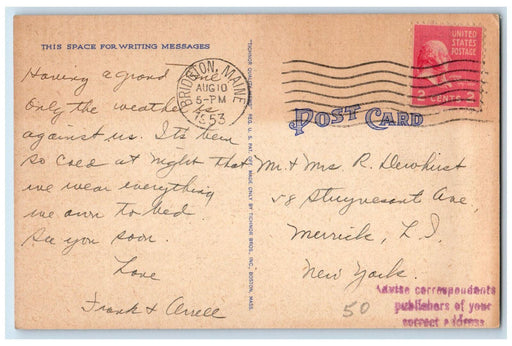 THIS SPACE FOR WRITING MESSAGES
Having a grand time
Only the weather is
against us. It's been
so cold at night that
we wear everything
we own to bed
See you soon.
Love
Frank &
BRIDGTON, MAINE
AUG 10
5-PM
1953
UNITED
STATES
POSTAGE
2 CENTS 2
POST CARD
Mr & Mrs R. Dewhirst
58 Stuyvesant Ave,
Merrick, L I,
New York.
50
Advise correspondents
publishers of your
correct address
"TICHNOR QUALITY VIEWS," REG. U. S. PAT. OFF. MADE ONLY BY TICHNOR BROS., INC., BOSTON, MASS.